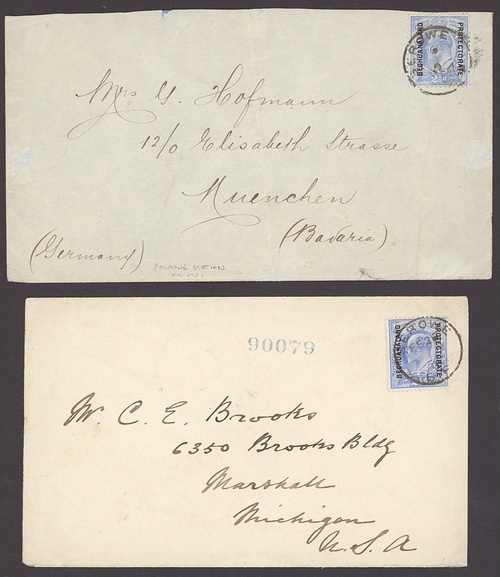 SEROWE
BECHUANALAND PROTECTORATE
Mrs G. Hofmann
12/0 Elisabeth Strasse
Muenchen
(Bavaria)
(Germany)
PALAPYE STATION
SEROWE
BECHUANALAND PROTECTORATE
90079
Mr. C. E. Brooks
6350 Brooks Bldg
Marshall
Michigan
U. S. A